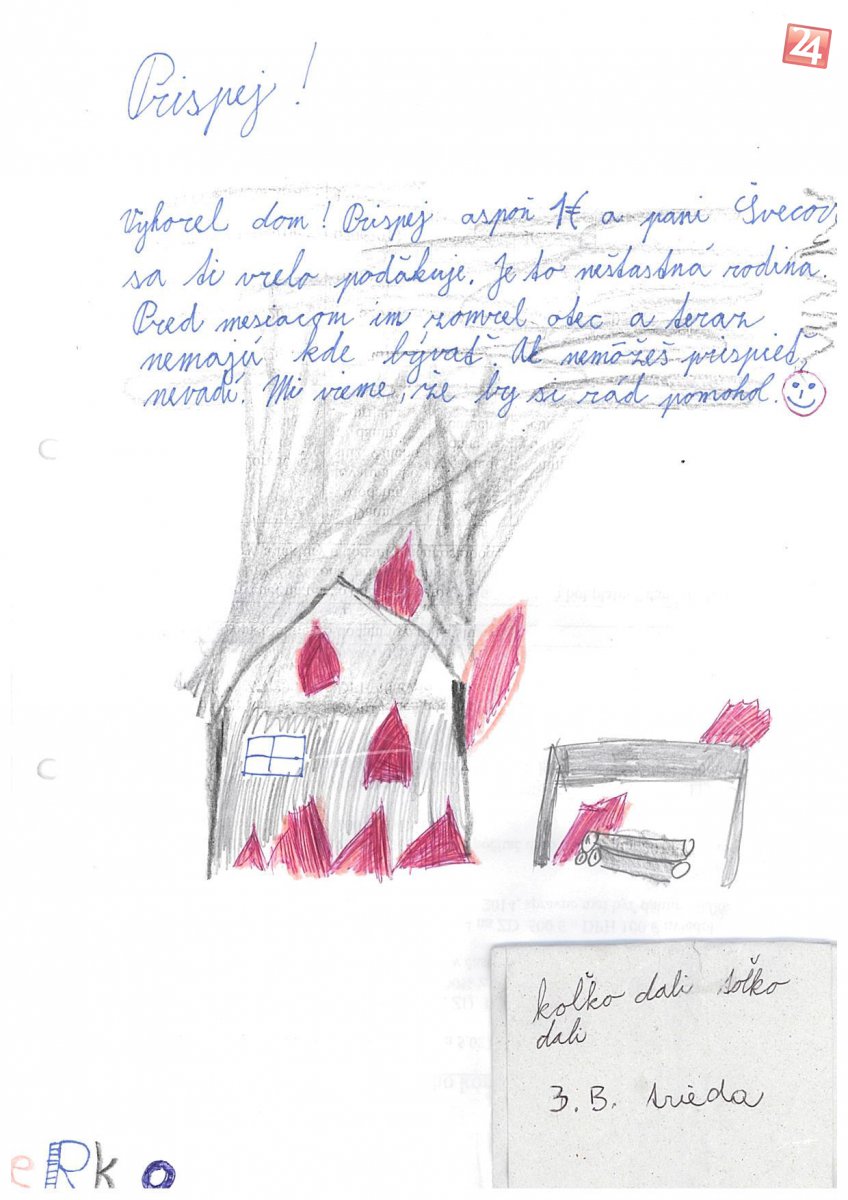 24
Prispej!
Vyhorel dom! Prispej aspoň 1€ a pani Švecov
sa ti vrelo poďakuje. Je to neštastná rodina.
Pred mesiacom im zomrel otec a teraz
nemajú kde bývať. Ak nemôžeš prispieť,
nevadí. Mi vieme, že by si rád pomohol.
koľko dali toľko
dali
3. B. trieda
eRko